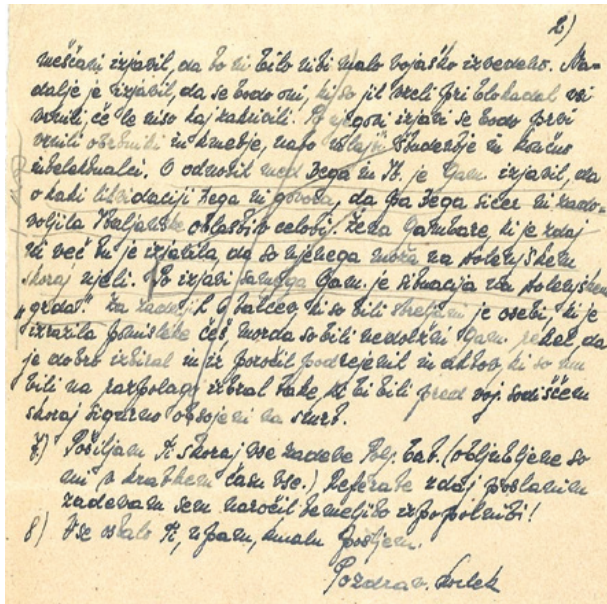 2)
meščani izjavil, da to ni bilo niti malo vojaško izvedeno. Na-
dalje je izjavil, da se bodo oni, ki so jih vzeli pri blokadah vsi
vrnili če le niso kaj zakrivili. Po njegovi izjavi se bodo prvi
vrnili obrtniki in kmetje, nato študentje in končno
intelektualci. O odnosih med Dega in It. je Gam. izjavil, da
o kaki likvidaciji Dega ni govora, da pa Dega sicer ni zado-
voljila Italijanske oblasti v celoti. Žena Gambare, ki je zdaj
ni več tu je izjavila, da so njenega moža na Dolenjskem
skoraj ujeli. Po izjavi samega Gam. je situacija na Dolenjskem
„grda". Za zadnjih talcev, ki so bili streljani je osebi, ki je
izrazila pomisleke češ, morda so bili nedolžni Gam. rekel, da
je dobro izbiral in iz poročil podrejenih in aktov, ki so mu
bili na razpolago izbral take, ki bi bili pred voj. sodiščem
skoraj sigurno obsojeni na smrt.
7) Pošiljam ti skoraj vse zadeve Polj. tab. (obljubljene so
mi v kratkem času vse.) Referate zdaj poslanim
zadevam sem naročil temeljito izpopolniti!
8) Vse ostalo ti, upam, kmalu pošljem.
Pozdrav.